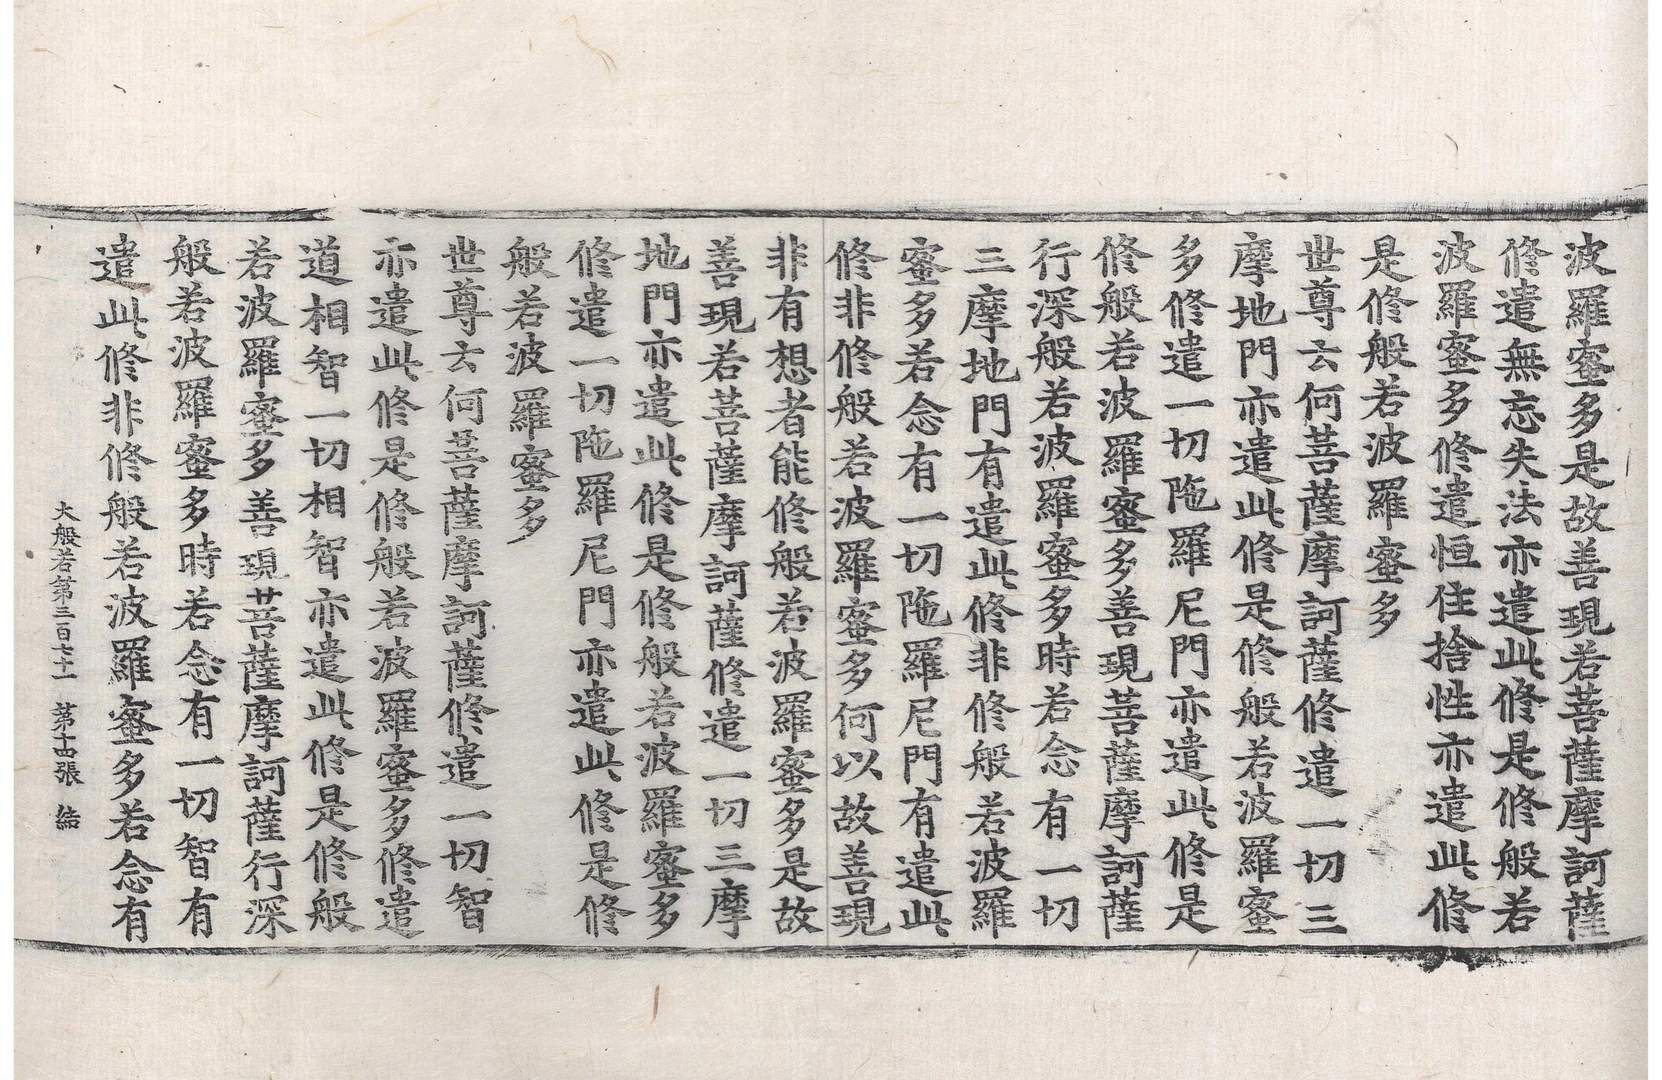 波羅蜜多是故善現若菩薩摩訶薩
修遣無忘失法亦遣此修是修般若
波羅蜜多修遣恒住捨性亦遣此修
是修般若波羅蜜多
世尊云何菩薩摩訶薩修遣一切三
摩地門亦遣此修是修般若波羅蜜
多修遣一切陁羅尼門亦遣此修是
修般若波羅蜜多善現菩薩摩訶薩
行深般若波羅蜜多時若念有一切
三摩地門有遣此修非修般若波羅
蜜多若念有一切陁羅尼門有遣此
修非修般若波羅蜜多何以故善現
非有想者能修般若波羅蜜多是故
善現若菩薩摩訶薩修遣一切三摩
地門亦遣此修是修般若波羅蜜多
修遣一切陁羅尼門亦遣此修是修
般若波羅蜜多
世尊云何菩薩摩訶薩修遣一切智
亦遣此修是修般若波羅蜜多修遣
道相智一切相智亦遣此修是修般
若波羅蜜多善現菩薩摩訶薩行深
般若波羅蜜多時若念有一切智有
遣此修非修般若波羅蜜多若念有
大般若第三百七十一 第十四張 結